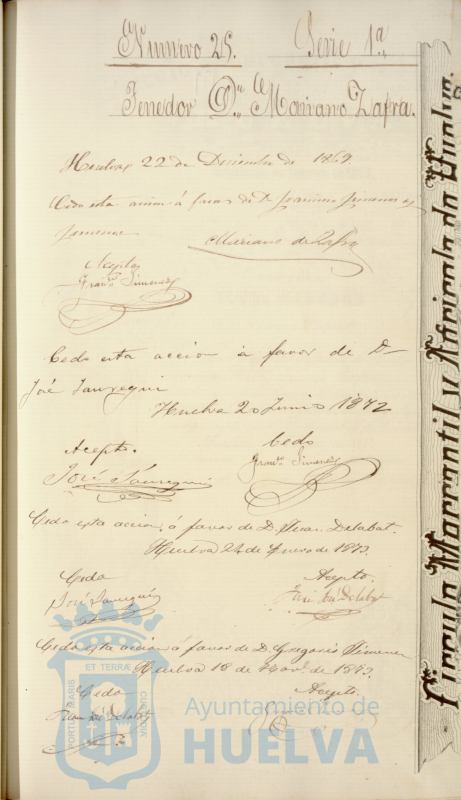 Numero 25. Serie 1ª
Tenedor Dn. Mariano Zafra.
Huelva 22 de Diciembre de 1869
Cedo esta accion á favor de Dn Francisco Jimenez y
Jimenez
Mariano de Zafra
Acepto
Franco Jimenez
Cedo esta accion a favor de D
José Jauregui
Huelva 20 Junio 1872
Acepto. Cedo
José Jauregui Franco Jimenez
Cedo esta accion á favor de D. Juan Delabat.
Huelva 24 de Enero de 1873.
Cedo Acepto.
José Jauregui Juan José Delabat
Cedo esta accion á favor de D. Gregorio Jimenez
Huelva 18 de de 1873.
Cedo Acepto
Juan José Delabat
Circulo Mercantil y Agricola de Huelva.
PORTUS MARIS ET TERRÆ CUSTODIA
Ayuntamiento de
HUELVA